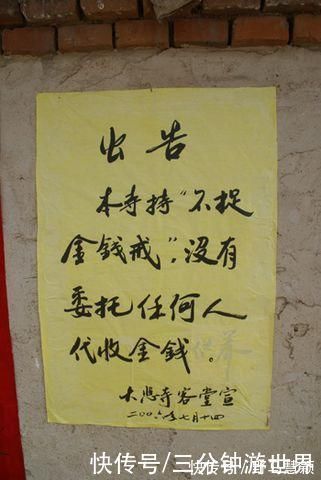 出告
本寺持“不捉
金钱戒”，没有
委托任何人
代收金钱。
大悲寺客堂宣
二00六年七月十四
快传号/三分钟游世界